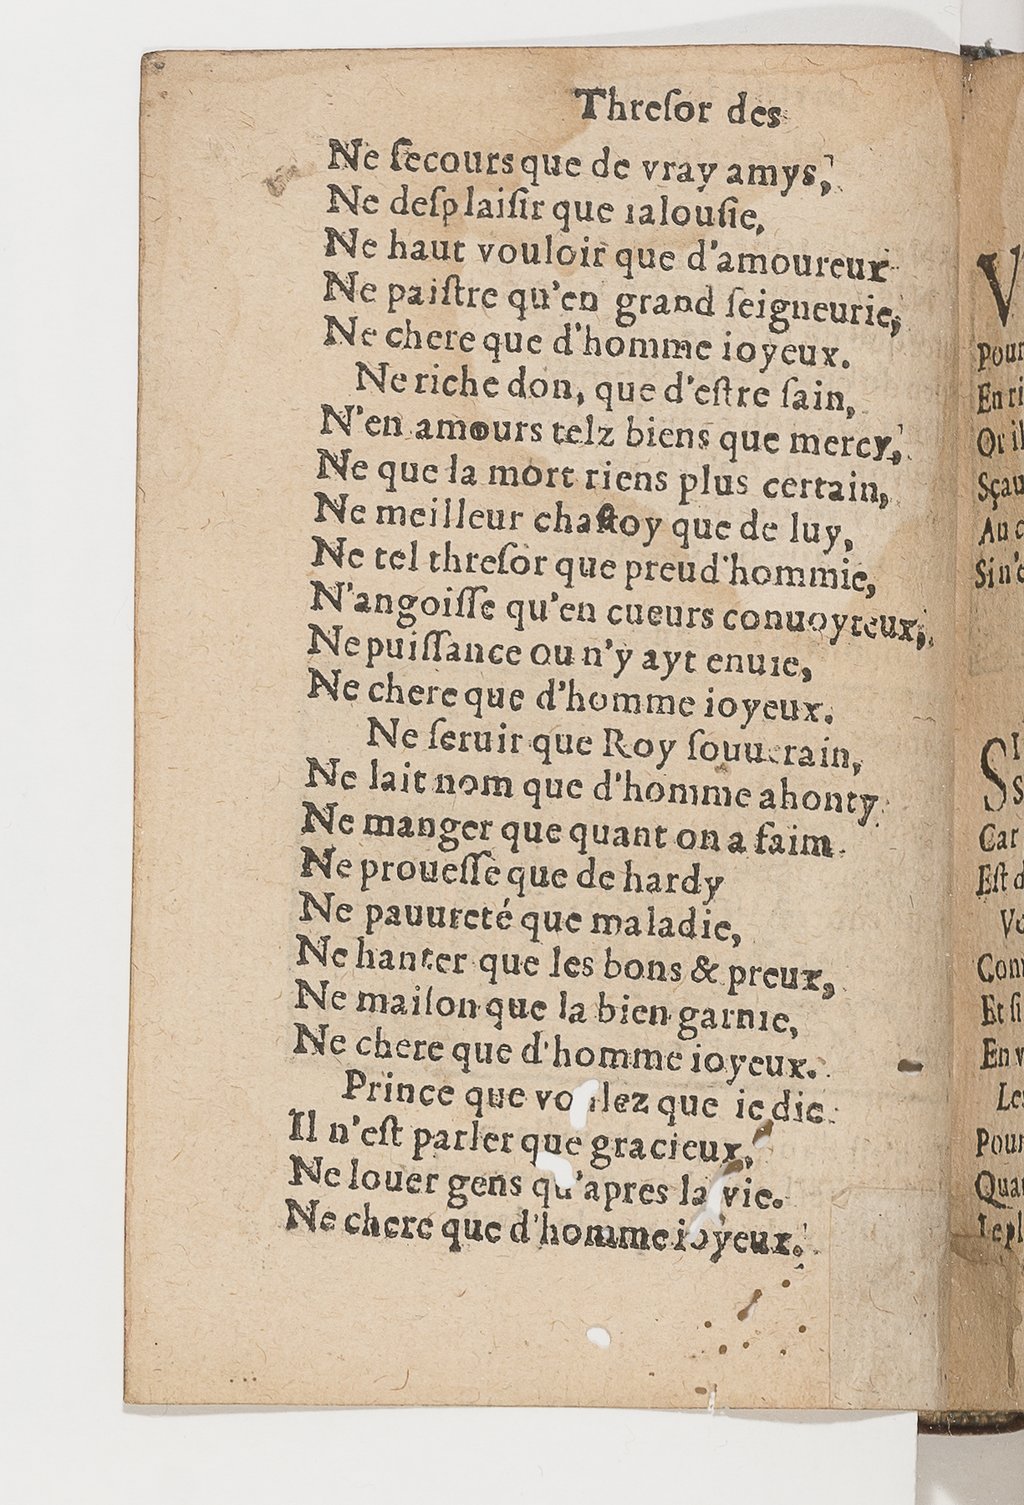 Threſor des
Ne ſecours que de vray amys,
Ne deſplaiſir que ialouſie,
Ne haut vouloir que d'amoureux
Ne paiſtre qu'en grand ſeigneurie,
Ne chere que d'homme ioyeux.
Ne riche don, que d'eſtre ſain,
N'en amours telz biens que mercy,
Ne que la mort riens plus certain,
Ne meilleur chaſtoy que de luy,
Ne tel threſor que preud'hommie,
N'angoiſſe qu'en cueurs conuoyteux,
Ne puiſſance ou n'y ayt enuie,
Ne chere que d'homme ioyeux.
Ne ſeruir que Roy ſouuerain,
Ne lait nom que d'homme ahonty
Ne manger que quant on a faim.
Ne proueſſe que de hardy
Ne pauureté que maladie,
Ne hanter que les bons & preux,
Ne maiſon que la bien garnie,
Ne chere que d'homme ioyeux.
Prince que voulez que ie die.
Il n'eſt parler que gracieux,
Ne louer gens qu'apres la vie.
Ne chere que d'homme ioyeux.
V
Pour
En ri
Or il
Sçau
Au c
Si n'e
SI
s
Car
Eſt d
Ve
Con
Et ſi
En v
Le
Pour
Qua
Ie pl